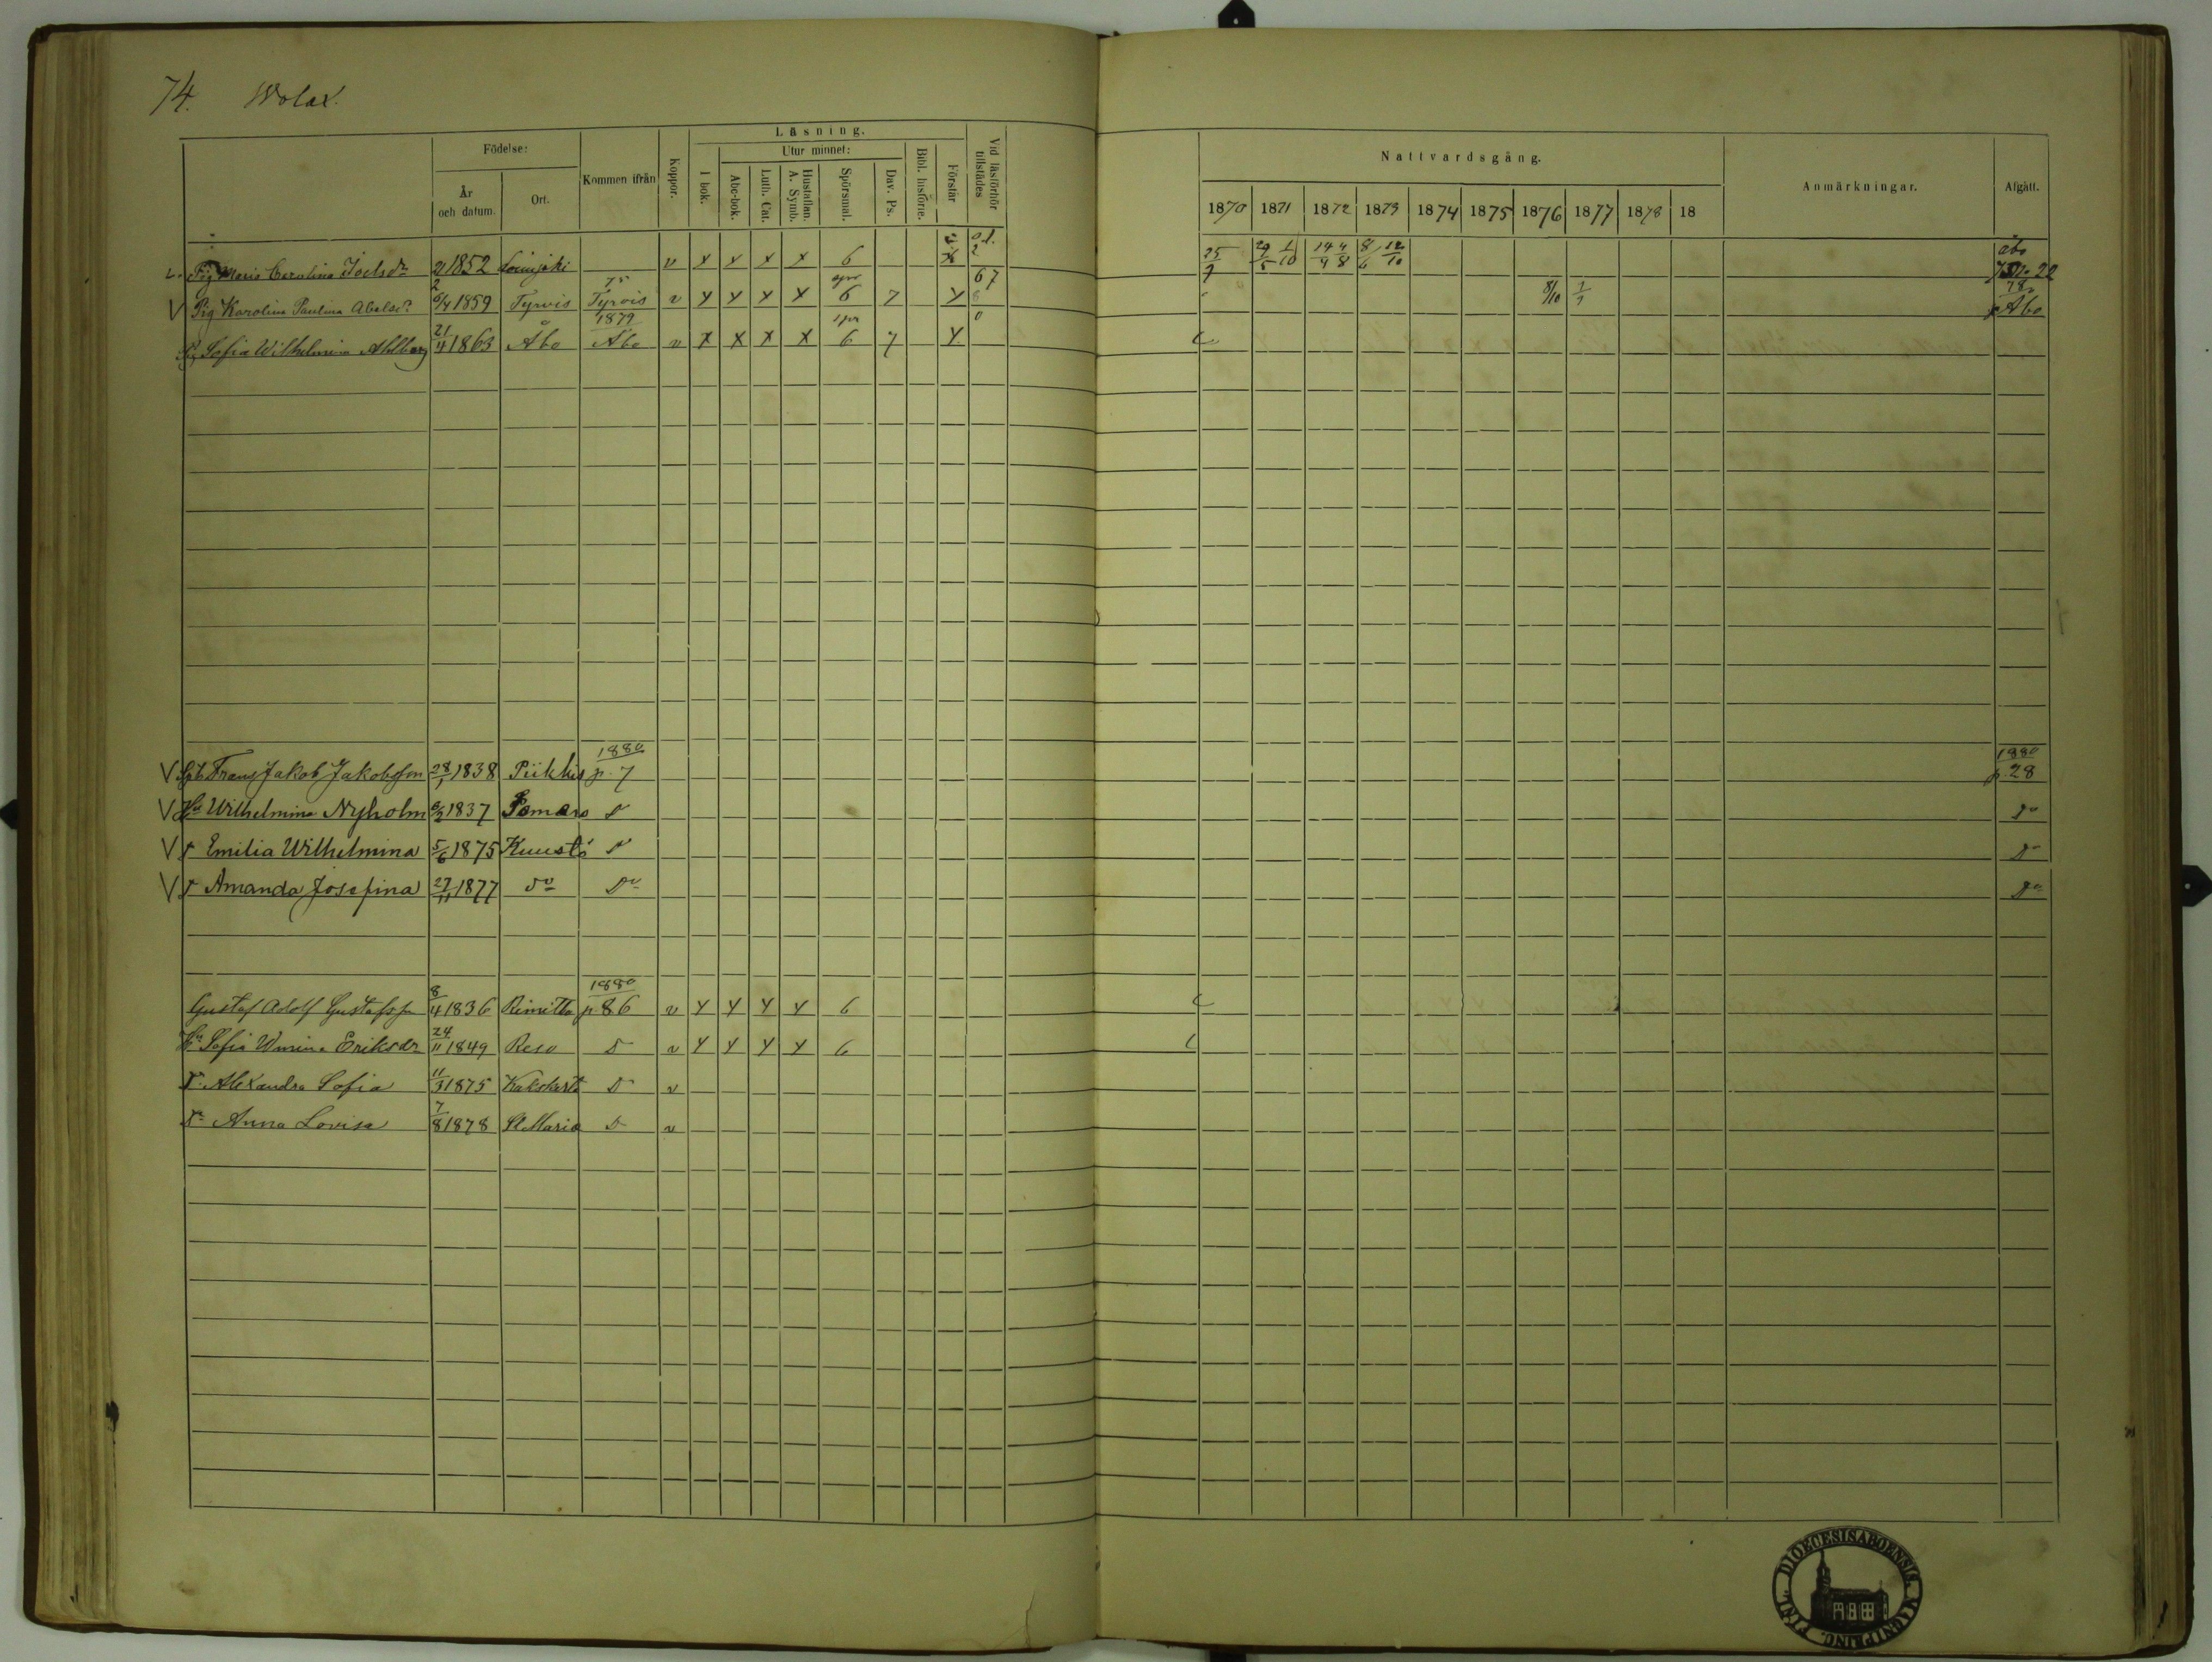 74. Wolax.
Födelse: Kommen ifrån Koppor. Läsning. Vid läsförhör tillstädes Nattvardsgång. Anmärkningar. Afgått.
År och datum. Ort. I bok. Utur minnet: Bibl. historie. Förstår
Abc-bok. Luth. Cat. Hustaflan. A. Symb. Spörsmal. Dav. Ps.
1870 1871 1872 1873 1874 1875 1876 1877 1878 18
Pig Maria Carolina Joelsdr 1852 v x x x x 6 25/9 29/5 1/10 14/4 4/8 8/6 12/10 åbo
V Pig Karolina Paulina Abelsdr 6/4 1859 Tyrvis 75 Tyrvis v y y x x 6 7 y 67 8/10 1/1 78 Åbo
Pig Sofia Wilhelmina Ahlberg 21/4 1863 Åbo 1879 Åbo v x x x x 6 7 y
V Frans Jakob Jakobsson 28/1 1838 Piikkis 1880 p. 7 1880 p. 28
V Hu Wilhelmina Nyholm 6/2 1837 Pemars D Do
V D Emilia Wilhelmina 5/6 1875 Kuustö D D
V D Amanda Josefina 27/11 1877 Do Do Do
Gustaf Adolf Gustafsson 8/4 1836 Rimitto 1880 p. 86 v y y y y 6
Hu Sofia Wmina Eriksdr 24/11 1849 Reso D v y y y y 6
D. Alexandra Sofia 11/3 1875 Kakskerta D v
D. Anna Lovisa 7/8 1878 St Marie D v
FINL. DIOECESIS ABOENSIS. MAGNI PRINC.